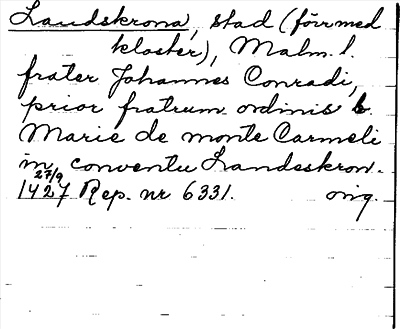 Landskrona, stad (förr med
kloster), Malm. l.
frater Johannes Conradi,
prior fratrum ordinis b.
Marie de monte Carmeli
in conventu Landeskron.
27/9
1427 Rep. nr 6331. orig.